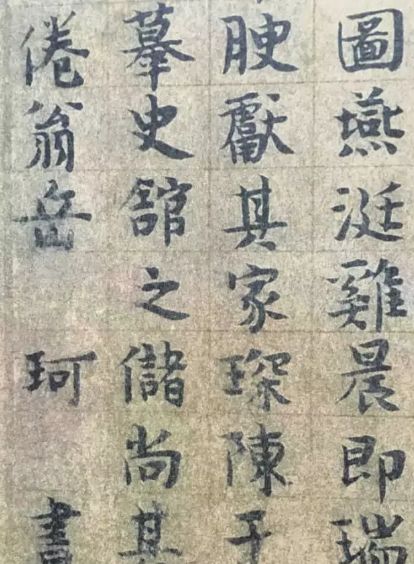 圖燕涏雞晨即瑞
腴獻其家琛陳于
摹史舘之儲尚其
倦翁岳珂書